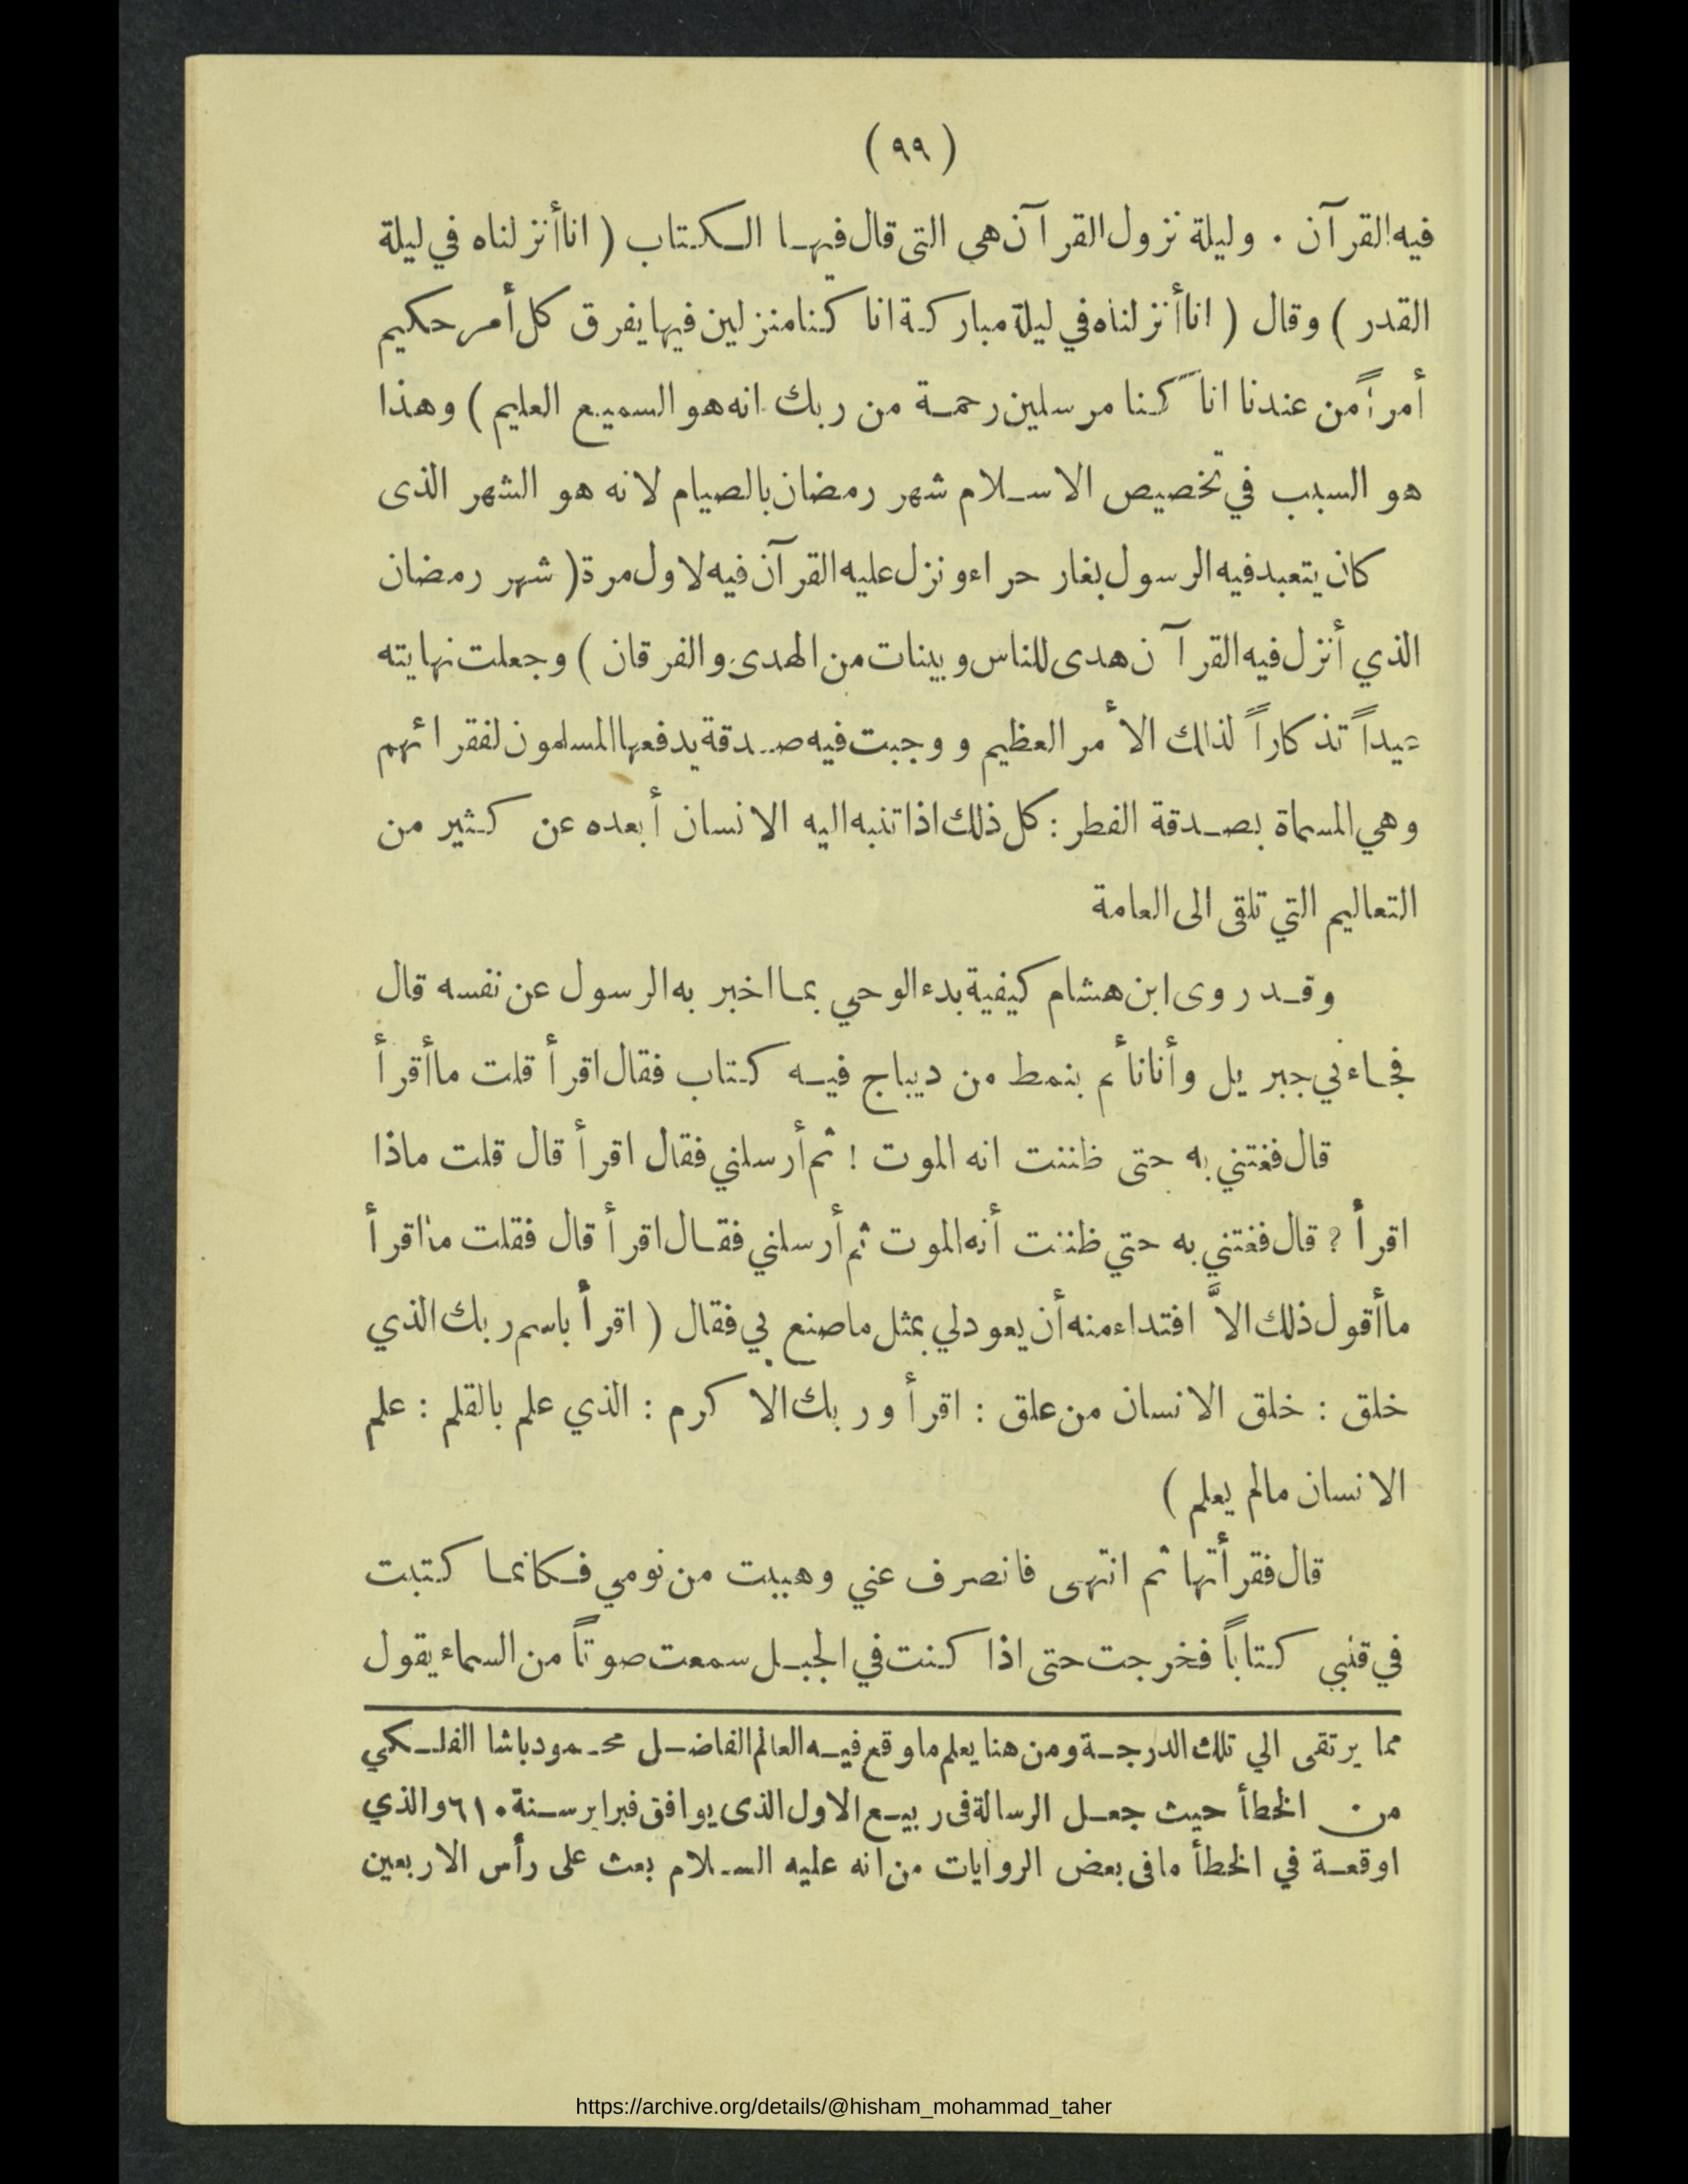 ( ٩٩ )
فيه القرآن . وليلة نزول القرآن هي التى قال فيها الكتاب ( انا أنزلناه في ليلة
القدر ) وقال ( انا أنزلناه في ليلة مباركة انا كنا منزلين فيها يفرق كل أمر حكيم
أمراً من عندنا انا كنا مرسلين رحمة من ربك انه هو السميع العليم ) وهذا
هو السبب في تخصيص الاسلام شهر رمضان بالصيام لانه هو الشهر الذى
كان يتعبد فيه الرسول بغار حراء ونزل عليه القرآن فيه لاول مرة ( شهر رمضان
الذي أنزل فيه القرآن هدى للناس وبينات من الهدى والفرقان ) وجعلت نهايته
عيداً تذكاراً لذلك الأمر العظيم ووجبت فيه صدقة يدفعها المسلمون لفقرائهم
وهي المسماة بصدقة الفطر : كل ذلك اذا تنبه اليه الانسان أبعده عن كثير من
التعاليم التي تلقى الى العامة
وقد روى ابن هشام كيفية بدء الوحي بما اخبر به الرسول عن نفسه قال
فجاءني جبريل وأنا نائم بنمط من ديباج فيه كتاب فقال اقرأ قلت ما أقرأ
قال فغتني به حتى ظننت انه الموت ! ثم أرسلني فقال اقرأ قال قلت ماذا
اقرأ ؟ قال فغتني به حتي ظننت أنه الموت ثم أرسلني فقال اقرأ قال فقلت ماذا اقرأ
ما أقول ذلك الاَّ افتداء منه أن يعود لي بمثل ما صنع بي فقال ( اقرأ باسم ربك الذي
خلق : خلق الانسان من علق : اقرأ وربك الاكرم : الذي علم بالقلم : علم
الانسان مالم يعلم )
قال فقرأتها ثم انتهى فانصرف عني وهببت من نومي فكانما كتبت
في قلبي كتاباً فخرجت حتى اذا كنت في الجبل سمعت صوتاً من السماء يقول
مما يرتقى الي تلك الدرجة ومن هنا يعلم ما وقع فيه العالم الفاضل محمود باشا الفلكي
من الخطأ حيث جعل الرسالة فى ربيع الاول الذى يوافق فبراير سنة ٦١٠ والذي
اوقعة في الخطأ مافى بعض الروايات من انه عليه السلام بعث على رأس الاربعين
https://archive.org/details/@hisham_mohammad_taher